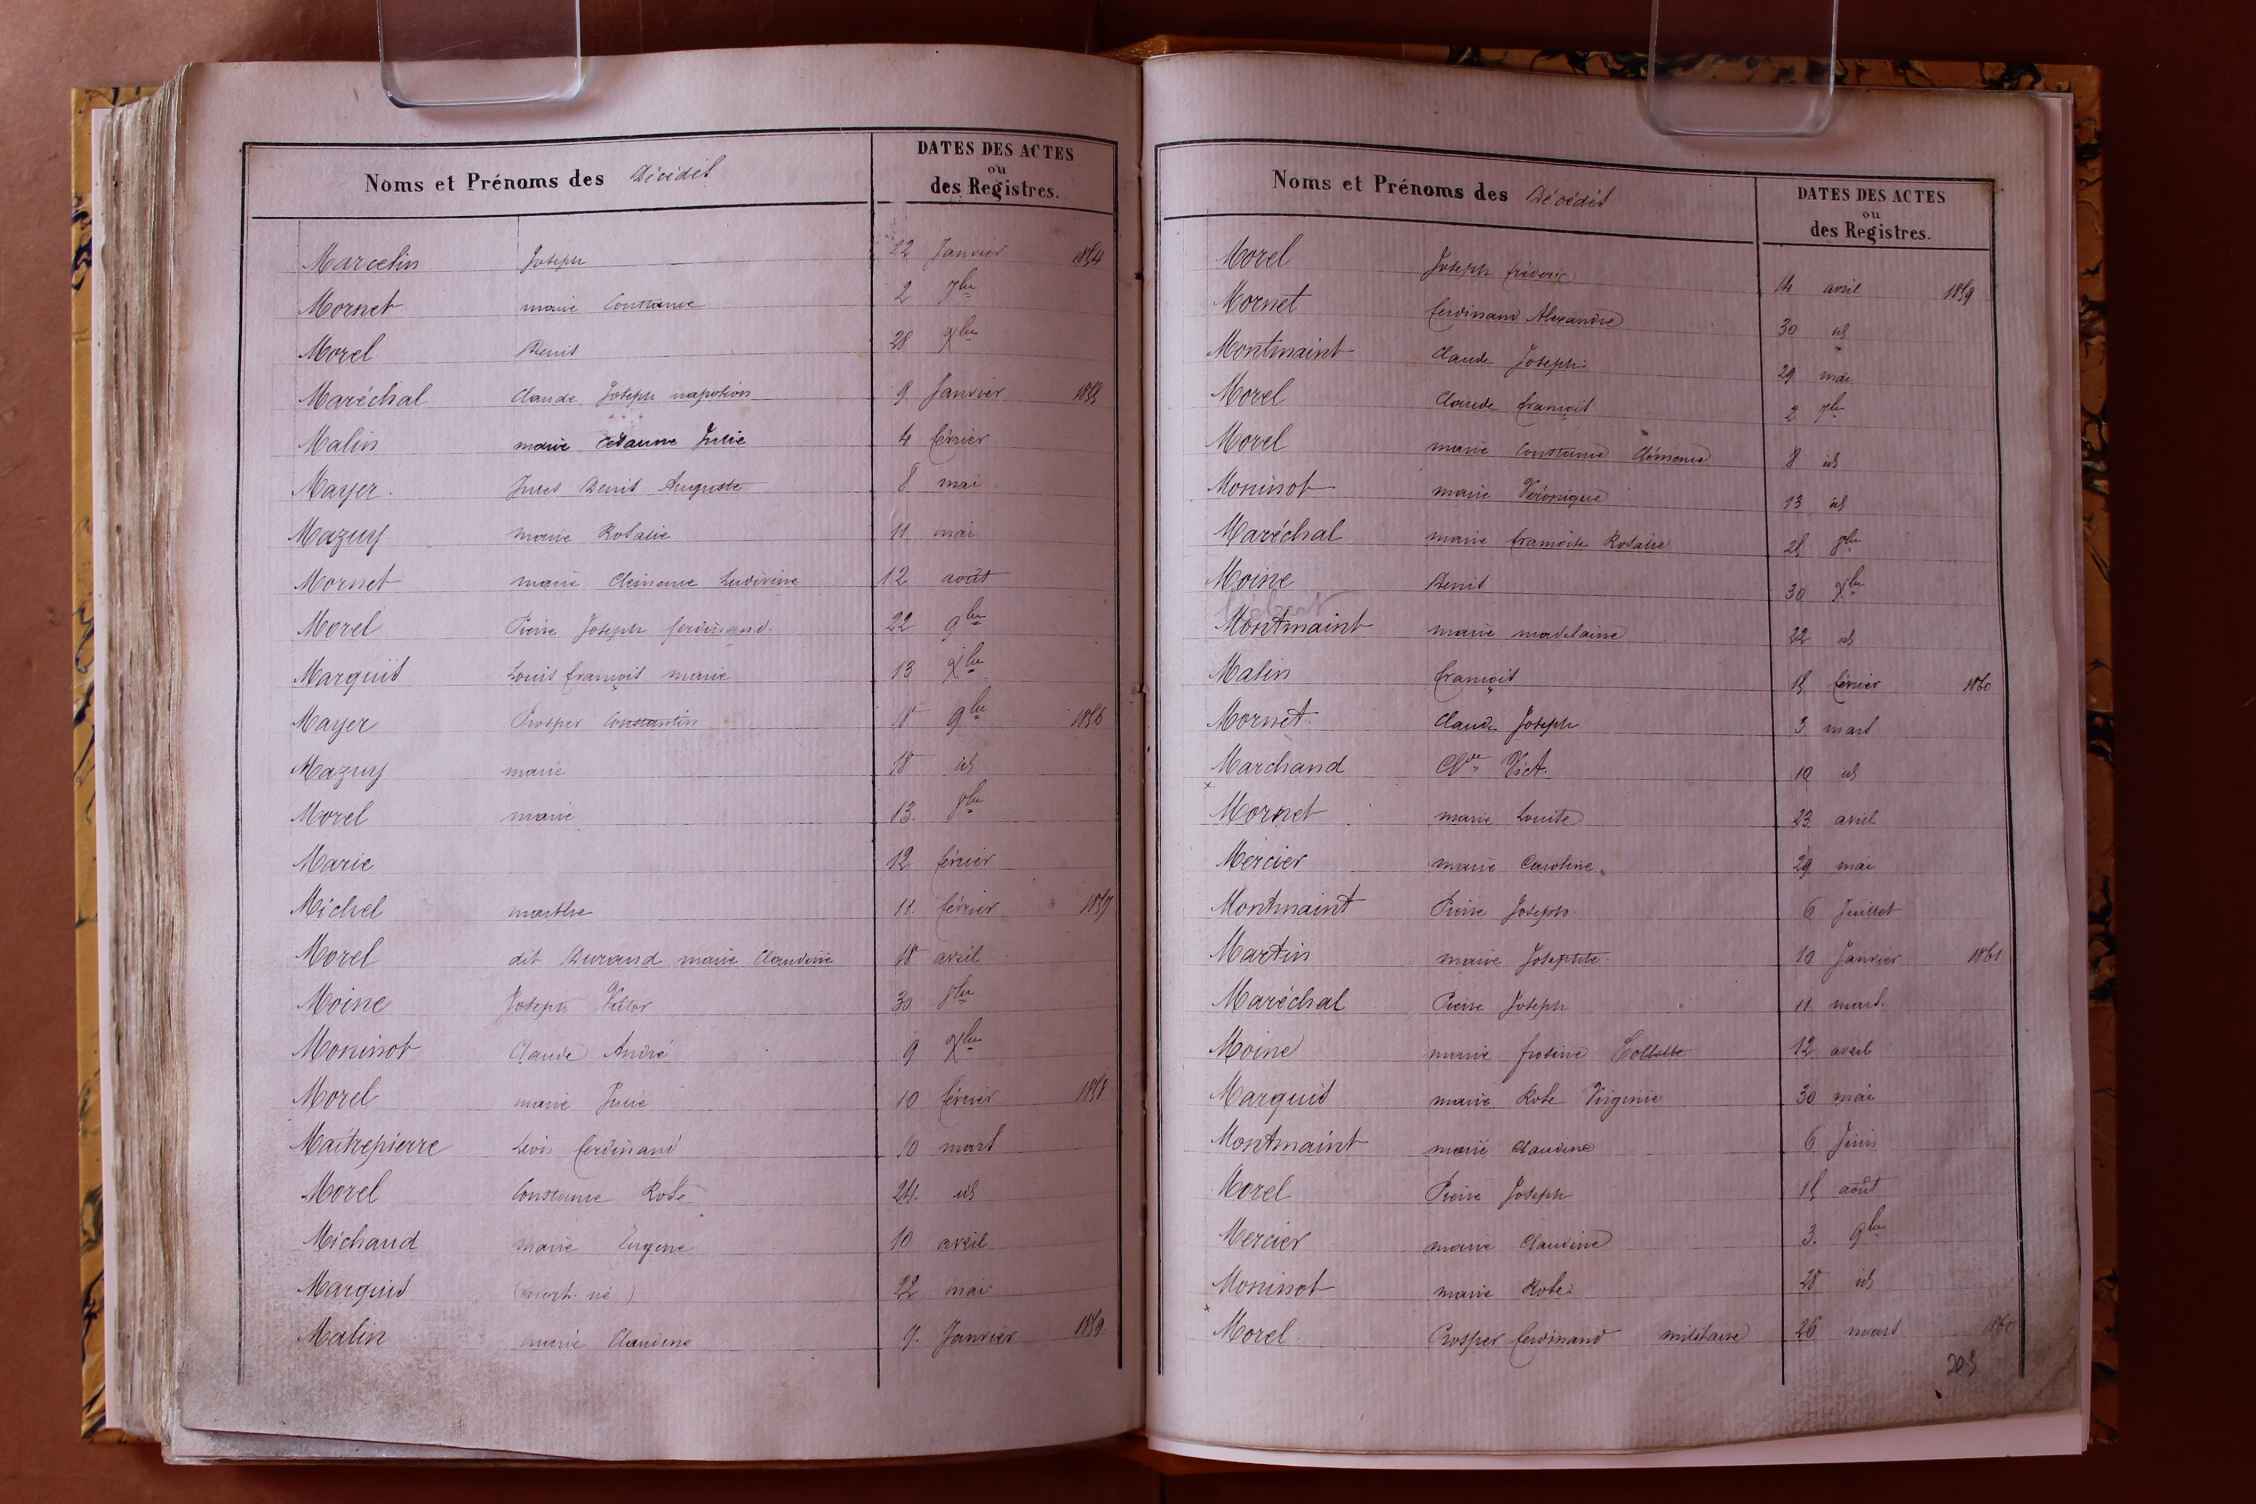 Noms et Prénoms des Décédés
DATES DES ACTES
ou
des Registres.
Marcelin Joseph 12 Janvier 1854
Mornet marie Constance 2 7bre
Morel Denis 28 Xbre
Maréchal Claude Joseph napoléon 9 Janvier 1855
Malin marie Julie 4 février
Mayer Jules Denis Auguste 8 mai
Mazuy marie Rosalie 11 mai
Mornet marie Clémence Ludivine 12 août
Morel Pierre Joseph ferdinand 22 9bre
Marquis Louis françois marie 13 Xbre
Mayer Prosper Constantin 18 9bre 1856
Mazuy marie 18 id
Morel marie 13. 8bre
Marie 12 février
Michel marthe 11. février 1857
Morel dit Durand marie Claudine 18 avril
Moine Joseph Victor 30 8bre
Moninot Claude André 9 Xbre
Morel marie Julie 10 février 1858
Maitrepierre Léon ferdinand 10 mars
Morel Constance Rose 24. id
Michaud marie Eugène 10 avril
Marquis (mort né) 22 mai
Malin marie Claudine 7. Janvier 1859
Noms et Prénoms des Décédés
DATES DES ACTES
ou
des Registres.
Morel Joseph fréderic 14 avril 1859
Mornet ferdinand Alexandre 30 id
Montmaint Claude Joseph 29 mai
Morel Claude françois 2 7bre
Morel marie Constance Clémence 8 id
Moninot marie Véronique 13 id
Maréchal marie françoise Rosalie 25 8bre
Moine Denis 30 Xbre
Montmaint marie madelaine 22 id
Malin françois 15 février 1860
Mornet Claude Joseph 3. mars
Marchand Cl.de Vict. 19 id
Mornet marie Louise 23 avril
Mercier marie Caroline 29 mai
Montmaint Pierre Joseph 6 Juillet
Martin marie Josephte 10 Janvier 1861
Maréchal Pierre Joseph 11 mars.
Moine marie Collette 12 avril
Marquis marie Rose Virginie 30 mai
Montmaint marie Claudine 6 Juin
Morel Pierre Joseph 15 août
Mercier marie Claudine 3. 9bre
Moninot marie Rose 28 id
Morel Prosper ferdinand militaire 26 mars
203